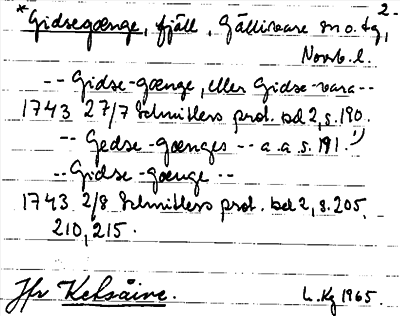 2-
*Gidsegænge, fjäll, Gällivare sn o. tg,
Norrb. l.
-- Gidse-gænge, eller Gidse-vara --
1743 27/7 Schnitlers prot. bd 2, s. 190.
-- Gedse-gænges -- a. a. s. 191. 1)
-- Gidse-gænge --
1743 2/8 Schnitlers prot. bd 2, s. 205,
210, 215.
Jfr Ketsåive. L. Kg 1965.